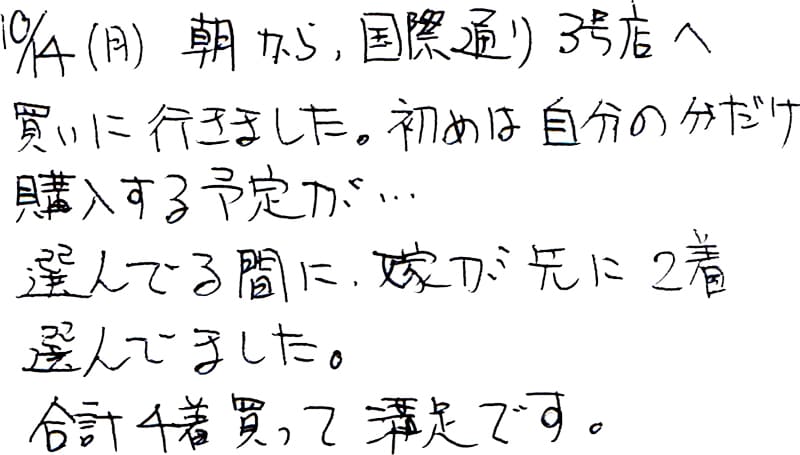 10/14(月) 朝から、国際通り3号店へ
買いに行きました。初めは自分の分だけ
購入する予定が…
選んでる間に、嫁が先に2着
選んでました。
合計4着買って満足です。